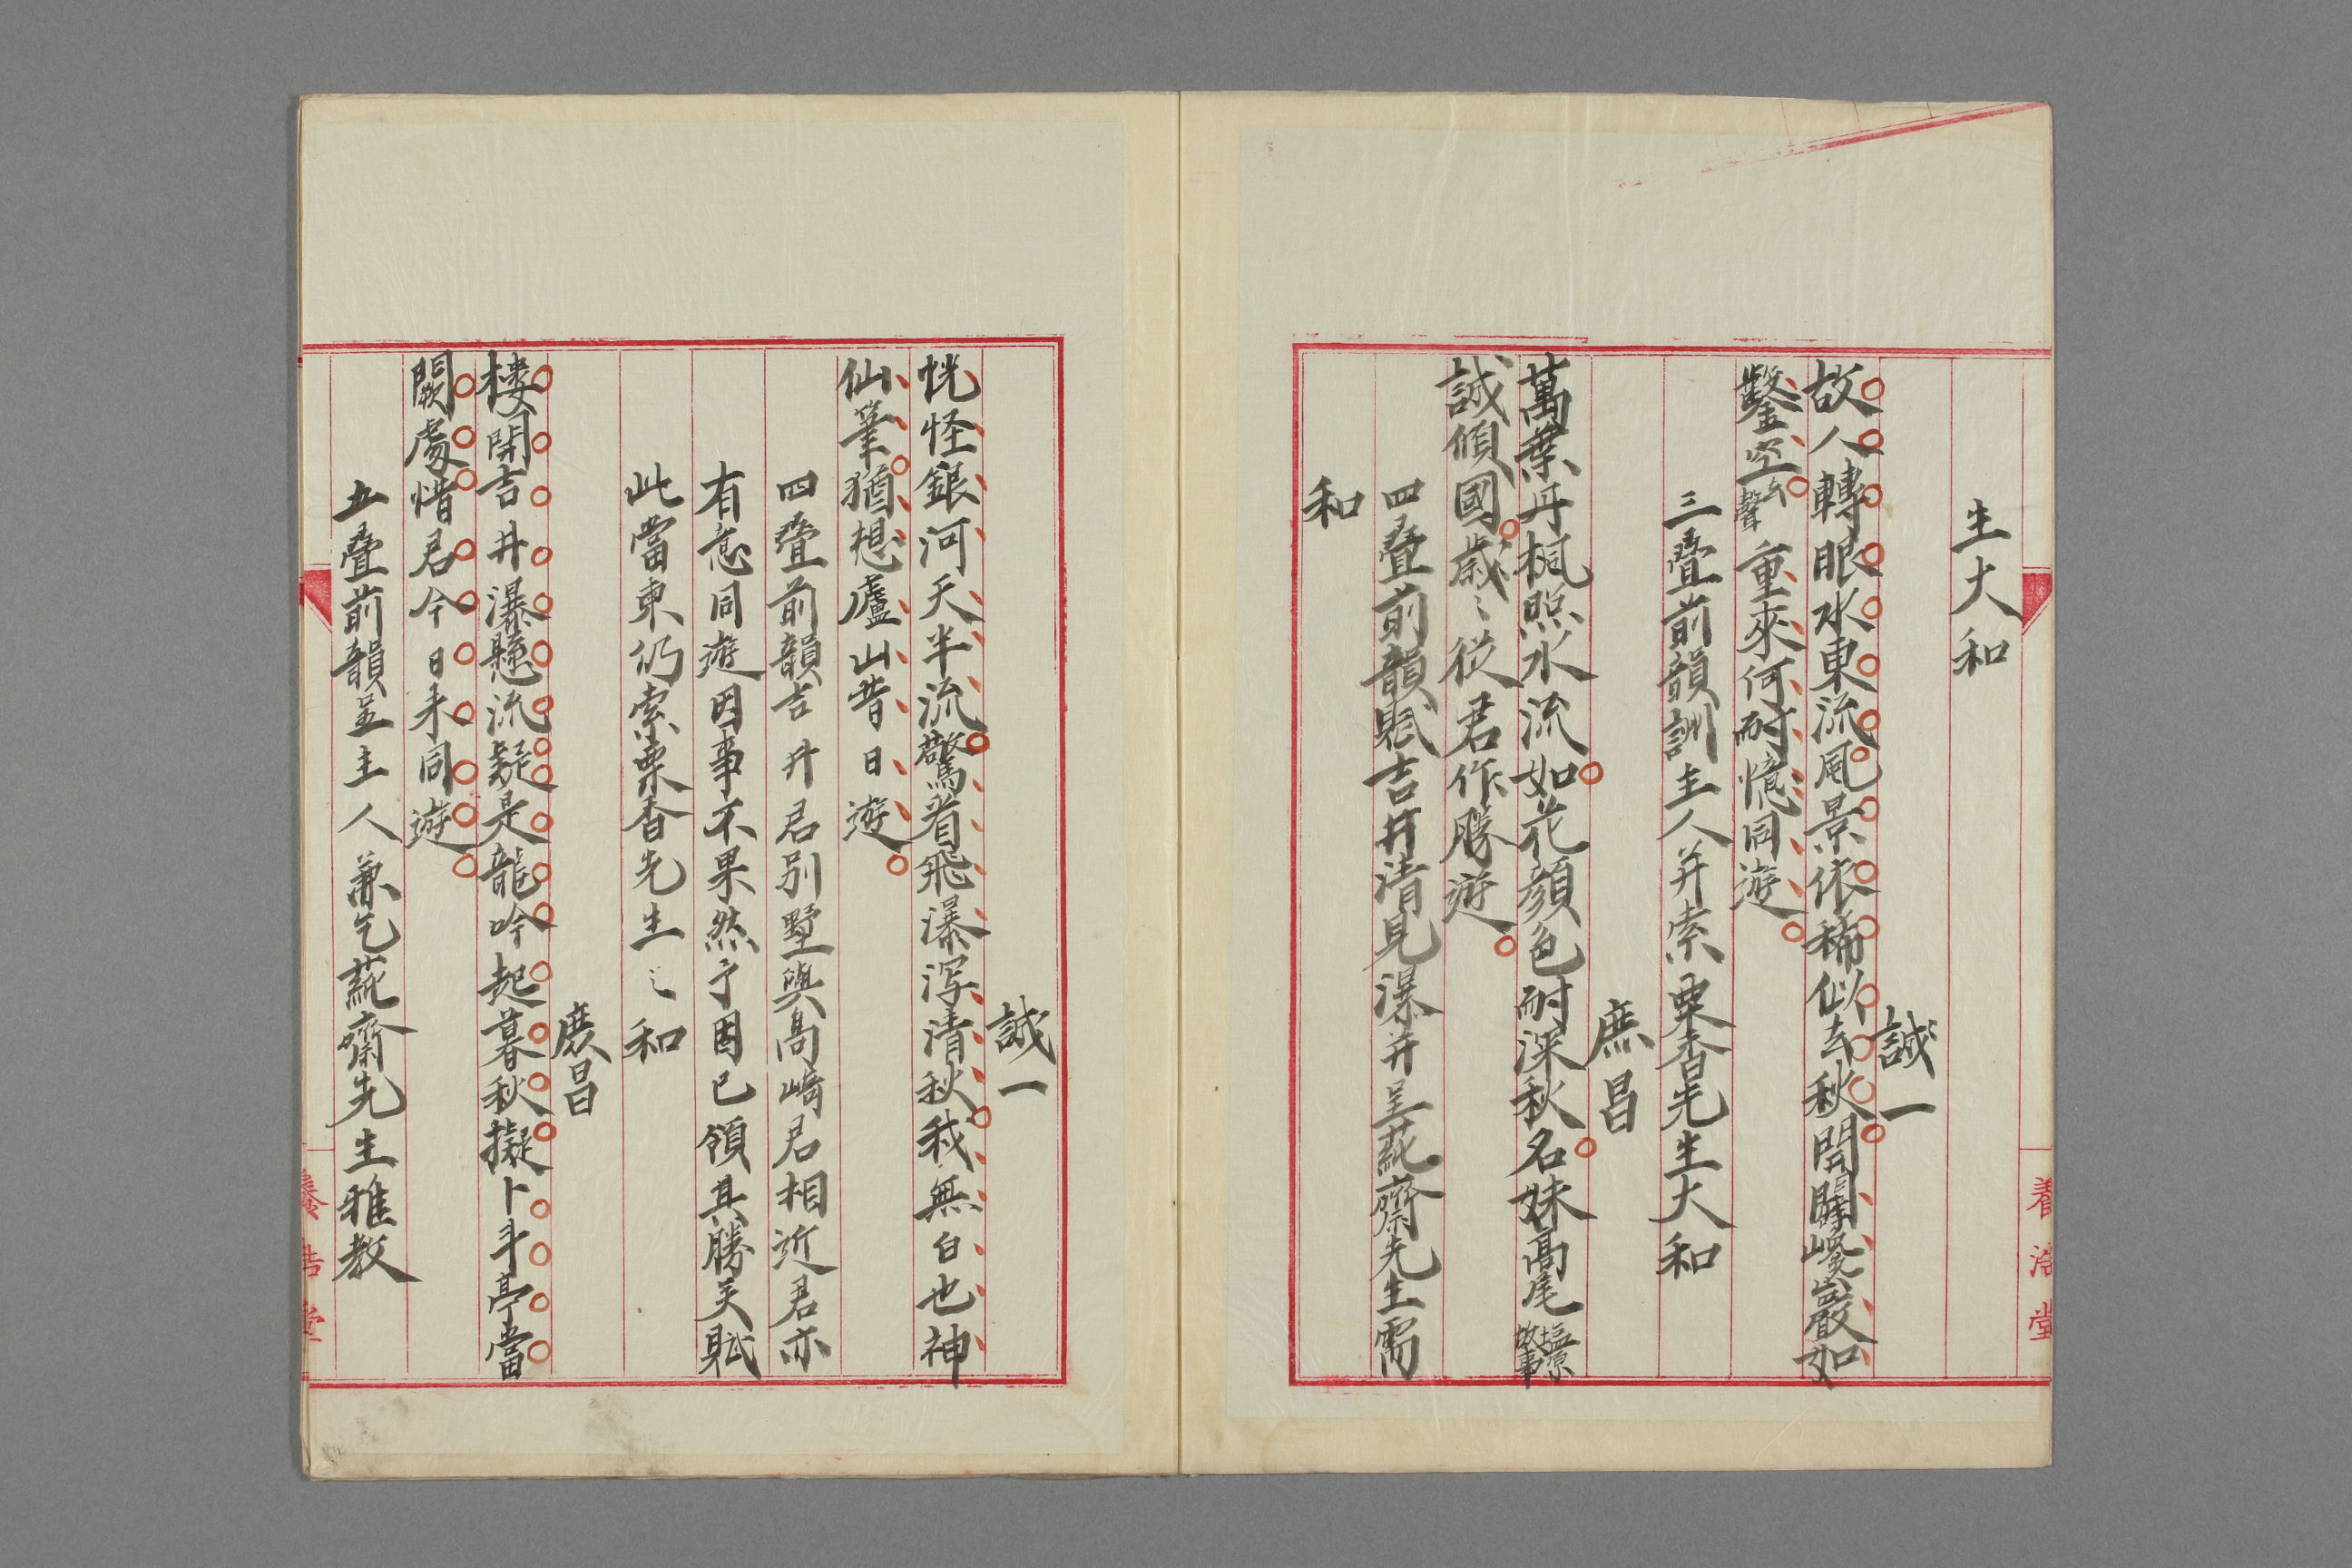 生大和
誠一
故人轉眼水東流風景依稀似去秋開闢巉巖如
鑿空去聲重來何耐憶同遊
三疊前韻訓主人并索栗香先生大和
庶昌
萬葉丹楓照水流如花顏色耐深秋名妹高尾塩原故事
誠傾國歲〻從君作勝遊
四疊前韻賦吉井清見瀑并呈蒓齋先生需
和
誠一
恍怪銀河天半流驚看飛瀑瀉清秋我無白也神
仙筆猶想廬山昔日遊
四疊前韻吉井君別墅與高崎君相近君亦
有意同遊因事不果然予固已領其勝矣賦
此當柬仍索栗香先生之和
庶昌
樓開吉井瀑懸流疑是龍吟起暮秋擬卜斗亭當
闕處惜君今日未同遊
五疊前韻呈主人兼乞蒓齋先生雅教
養浩堂
養浩堂